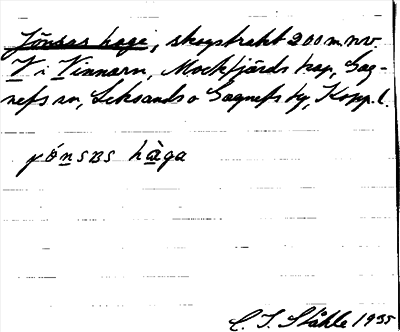 Jönsas hage, skogstrakt 200 m. nv.
V i Vinnarn, Mockfjärds kap, Gag-
nefs sn, Leksands o Gagnefs tg, Kopp. l.
jönsas hàga
C. I. Ståhle 1935